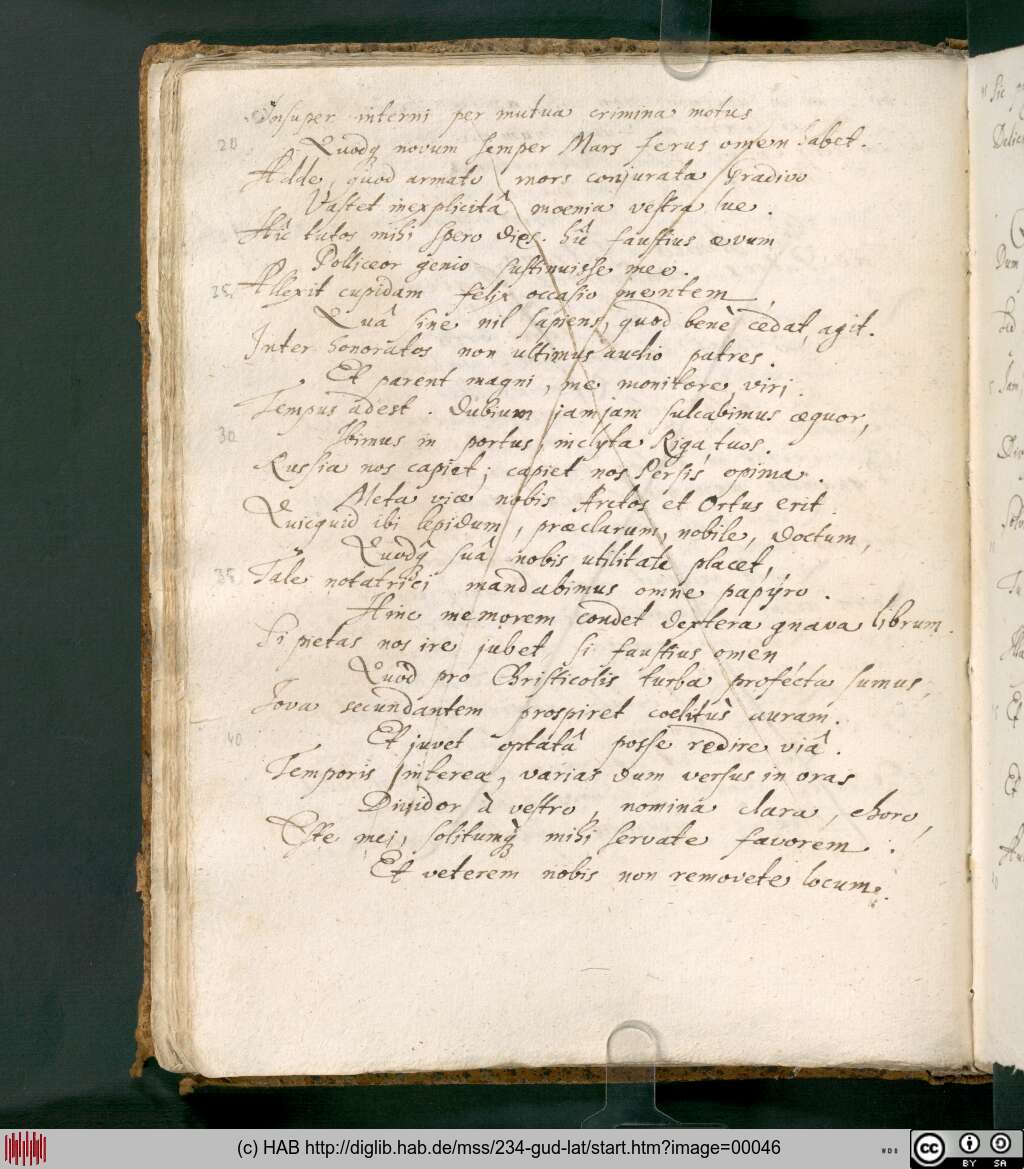 Insuper interni per mutua crimina motus
20 Quodq novum semper Mars ferus omen habet.
Adde, quod armato mors conjurata Gradivo
Vastet inexplicitâ moenia vestra lue.
Hîc tutos mihi spero dies. hîc faustius ævum
Polliceor genio sustinuisse meo.
25 Allexit cupidam felix occasio mentem,
Quâ sine nil sapiens, quod benè cedat, agit.
Inter honoratos non ultimus audio patres.
Et parent magni, me monitore, viri.
Tempus adest. dubium jamjam sulcabimus æquor,
30 Ibimus in portus, inclyta Riga, tuos.
Russia nos capiet; capiet nos Persis opima.
Meta viæ nobis Arctos et Ortus erit.
Quicquid ibi lepidum, præclarum, nobile, doctum,
Quodq suâ nobis utilitate placet,
35 Tale notatrici mandabimus omne papÿro.
Hinc memorem condet dextera gnava librum.
Si pietas nos ire jubet si faustius omen
Quod pro Christicolis turba profecta sumus,
Jova secundantem prospiret coelitùs auram.
40 Et juvet optatâ posse redire viâ.
Temporis interea, varias dum versus in oras
Dividor à vestro, nomina clara, choro,
Este mej, solitumq mihi servate favorem.
Et veterem nobis non removete locum.
(c) HAB http://diglib.hab.de/mss/234-gud-lat/start.htm?image=00046
cc BY SA